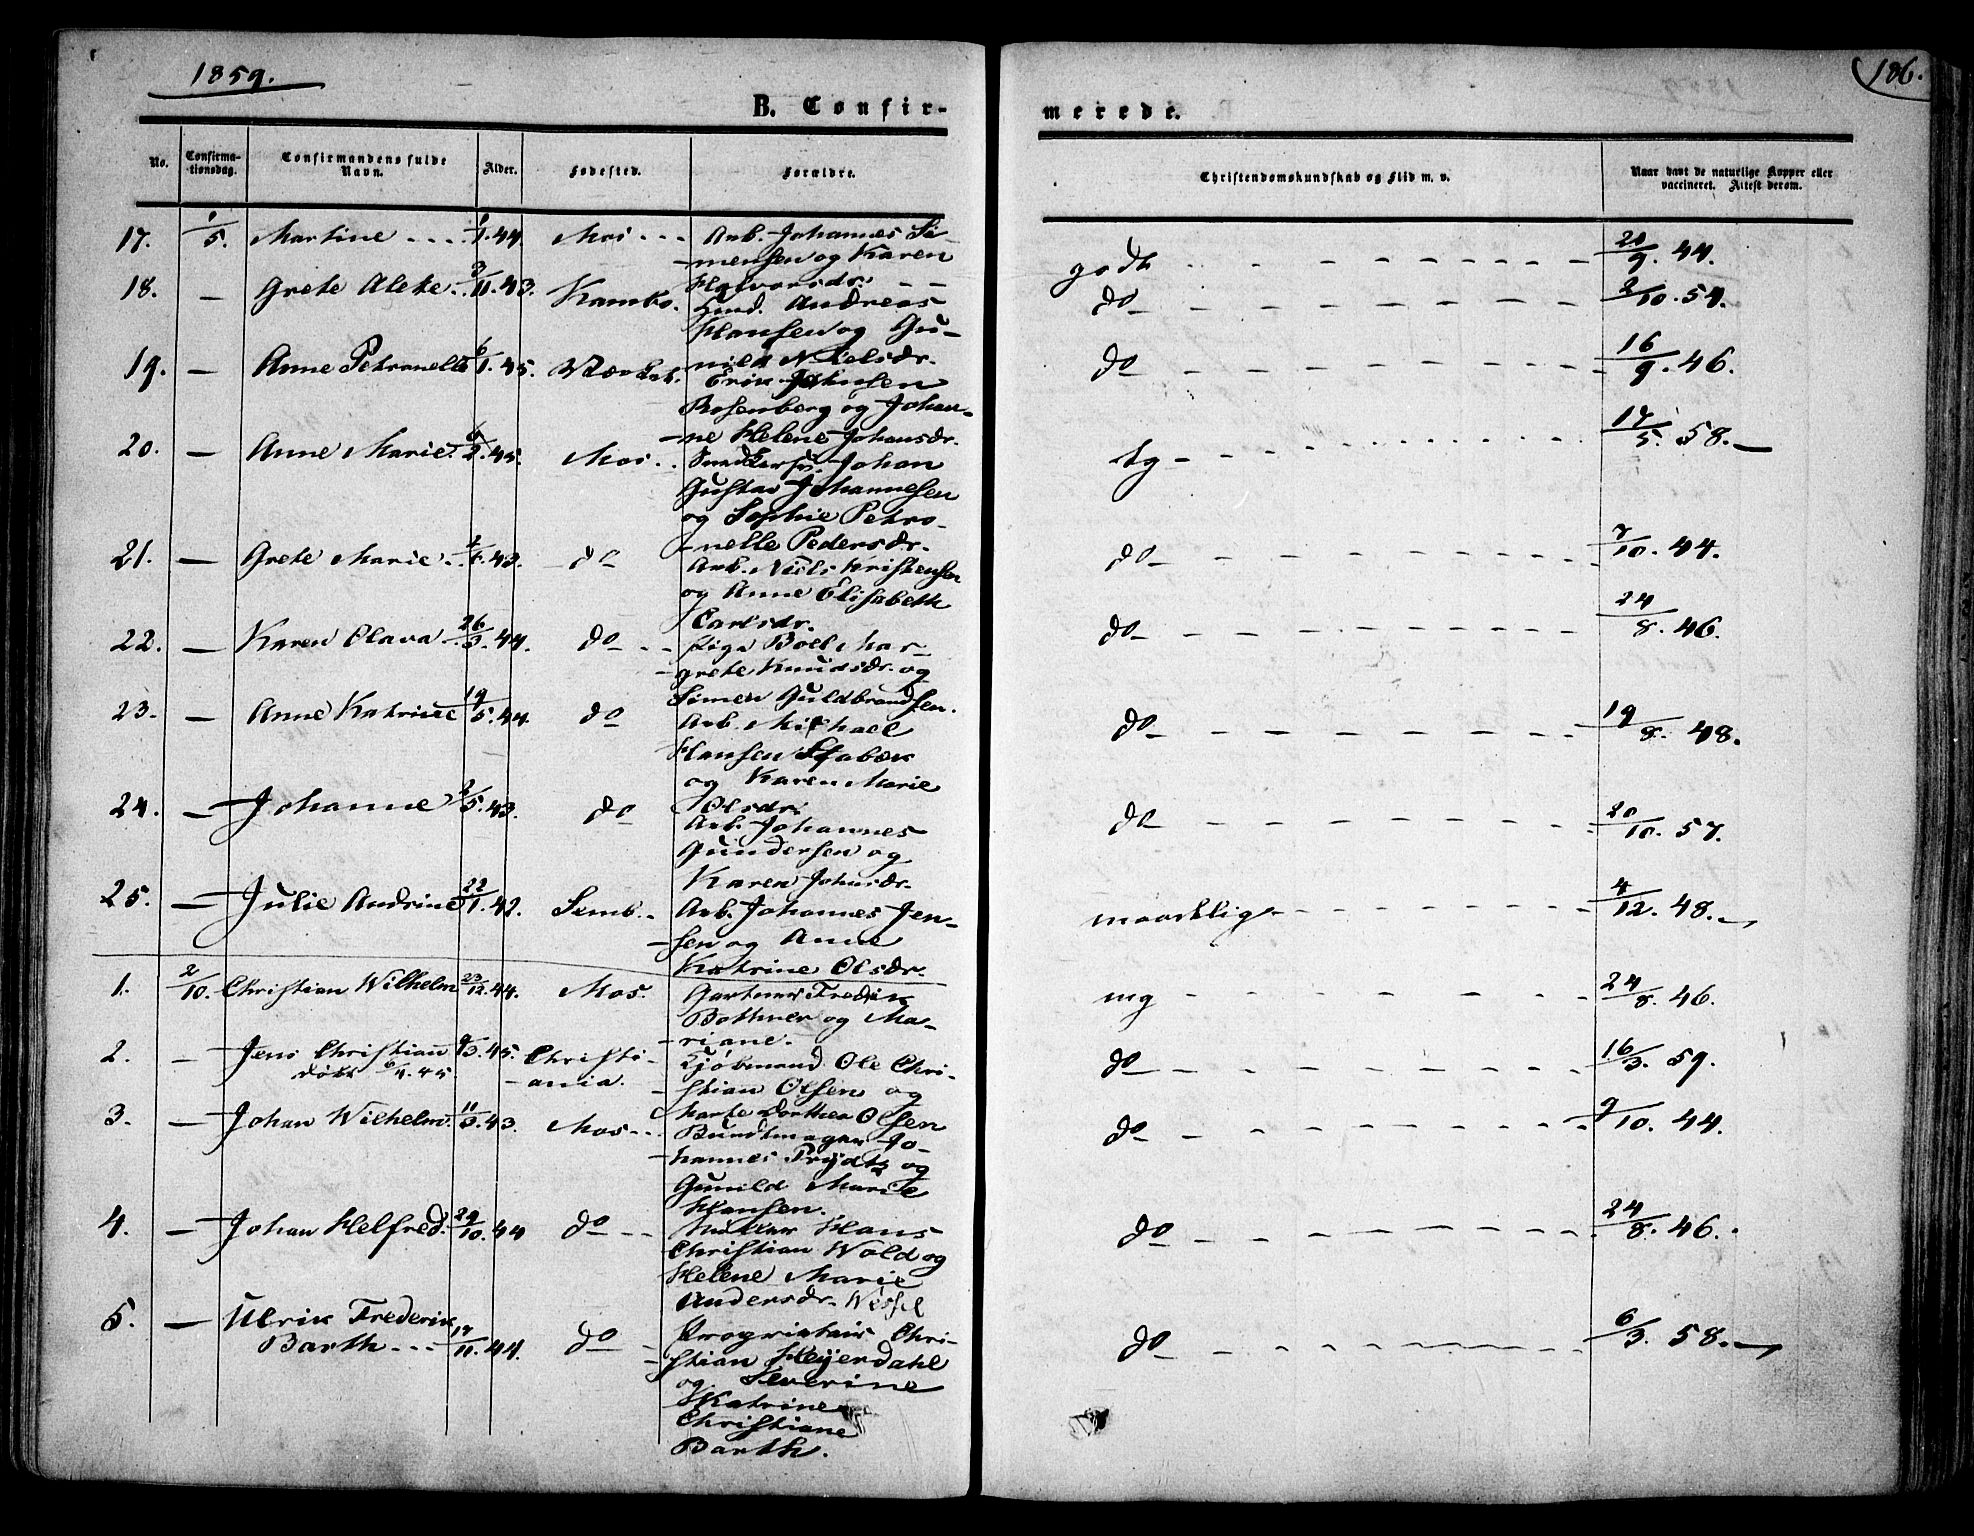 1859.
186.
B. Confir-
merede.
No.
Confirma-
tionsdag.
Confirmandens fulde
Navn.
Alder.
Fødested.
Forældre.
Christendomskundskab og Flid m. v.
Naar havt de naturlige Kopper eller
vaccineret. Attest derom.
17. 1/5. Martine 1/1.44 Mos Arb. Johannes Si-
mensen og Karen
Halvorsdr.
godt 20/9. 44.
18. — Grete Aleke 3/11.43. Kambo. Husm. Andreas
Hansen og Gu-
nild Nielsdr.
do 2/10. 54.
19. — Anne Petronelle 6/1.45. Erik Johnsen
Rosenberg og Johan-
ne Helene Johansdr.
do 16/9. 46.
20. — Anne Marie 6/2.45. Mos Johan
Gustav Johannesen
og Sophie Petro-
nelle Pedersdr.
tg 17/5. 58.
21. — Grete Marie do Arb. Niels Kristensen
og Anne Elisabeth
Carlsdr.
do 7/10. 44.
22. — Karen Olava 26/3.44. do Pige Boel Mar-
grete Knudsdr. og
Simen Guldbrandsen.
do 24/8. 46.
23. — Anne Katrine 19/5.44. do Arb. Michael
Hansen Stabæk
og Karen Marie
Olsdr.
do 19/8. 48.
24. — Johanne 2/5.43. do Arb. Johannes
Gundersen og
Karen Johnsdr.
do 20/10. 57.
25. — Julie Andrine 22/1.42. Semb. Arb. Johannes Jen-
sen og Anne
Katrine Olsdr.
maadelig 4/12. 48.
1. 2/10. Christian Wilhelm 23/12.44. Mos. Gartner Fredrik
Bothner og Ma-
riane.
mg 24/8. 46.
2. — Jens Christian 9/3.45. Christi-
døbt 6/4.45. ania.
Kjøbmand Ole Chri-
stian Olsen og
Marte Dorthea Olsen
do 16/3. 59.
3. — Johan Wilhelm. 11/3.43. Mos Bundtmager Jo-
hannes Prydtz og
Gunild Marie
Hansen.
do 9/10. 44.
4. — Johan Helfred. 29/10.44 do Hans
Christian Wold og
Helene Marie
Andersdr. Wessel
do 24/8. 46.
5. — Ulrik Frederik
Barth 17/11.44. do Proprietair Chri-
stian Heyerdahl
og Severine
Katrine
Christiane
Barth.
do 6/3. 58.